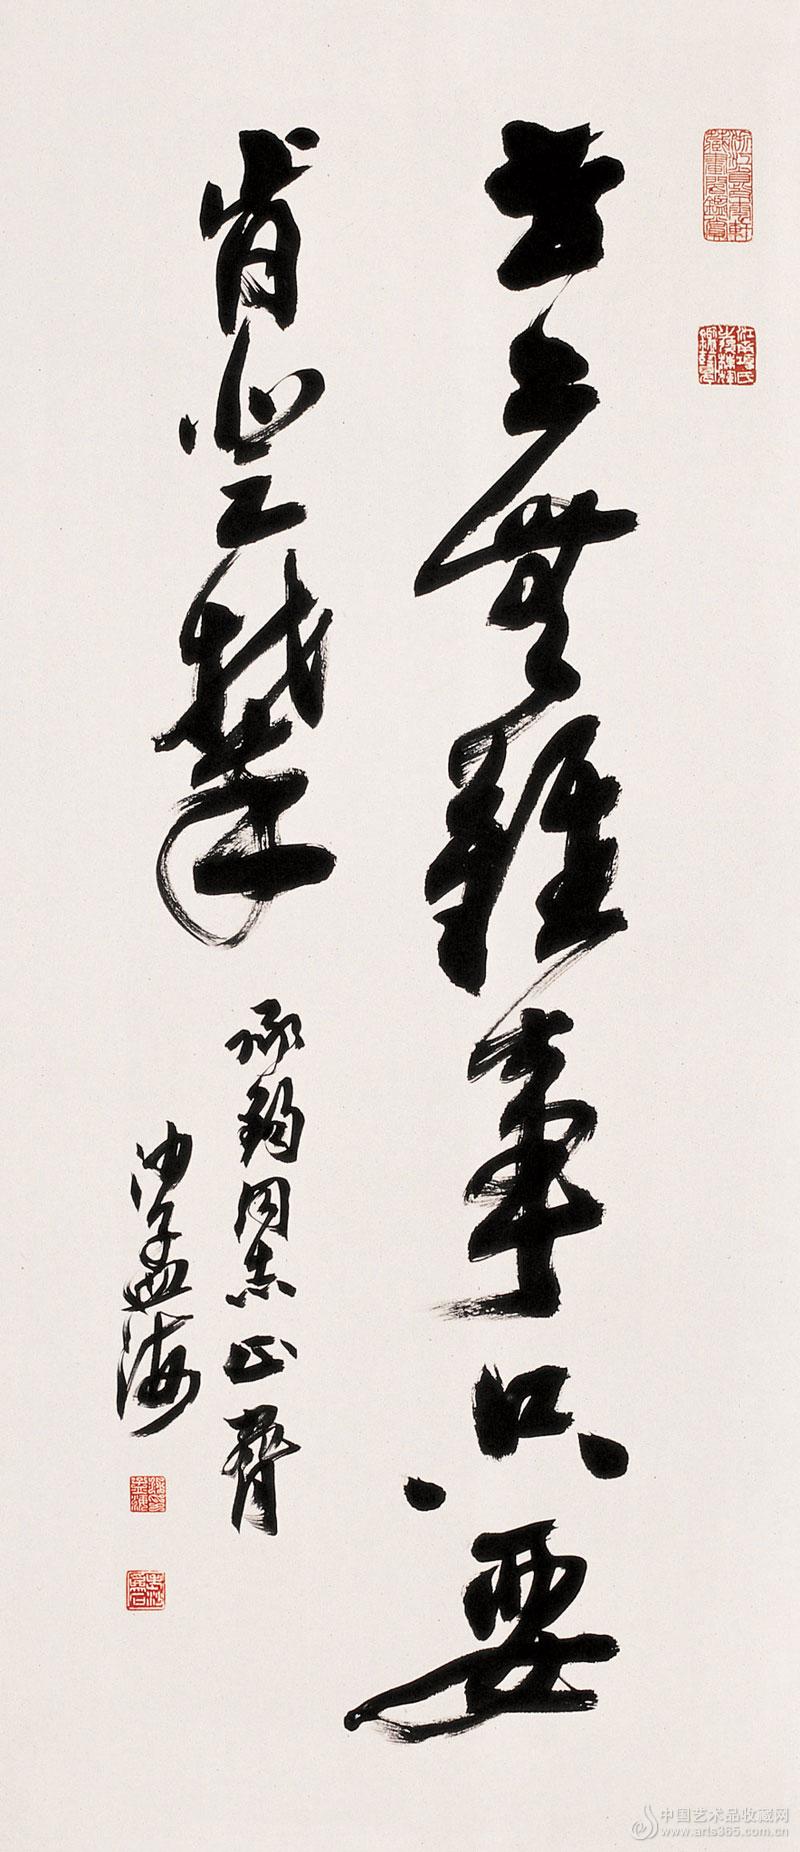 世上無難事只要
肯登攀
承鈞同志正
沙孟海
中国艺术品收藏网
www.arts365.com.cn